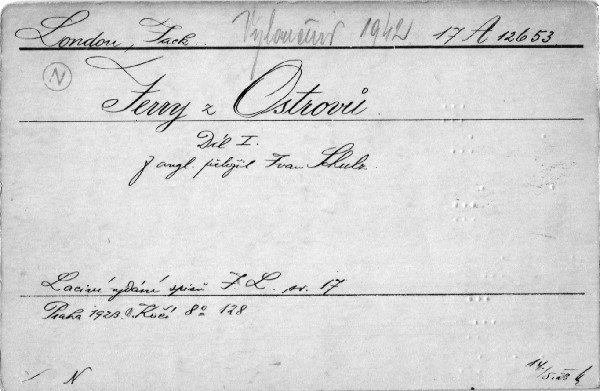 London, Jack. Vyloučeno 1942 17 A 12653
N
Jerry z Ostrovů
Díl I.
Z angl. přeložil Ivan Schulz.
Laciné vydání spisů J. L. sv. 17
Praha 1923. B. Kočí 8° 128
N